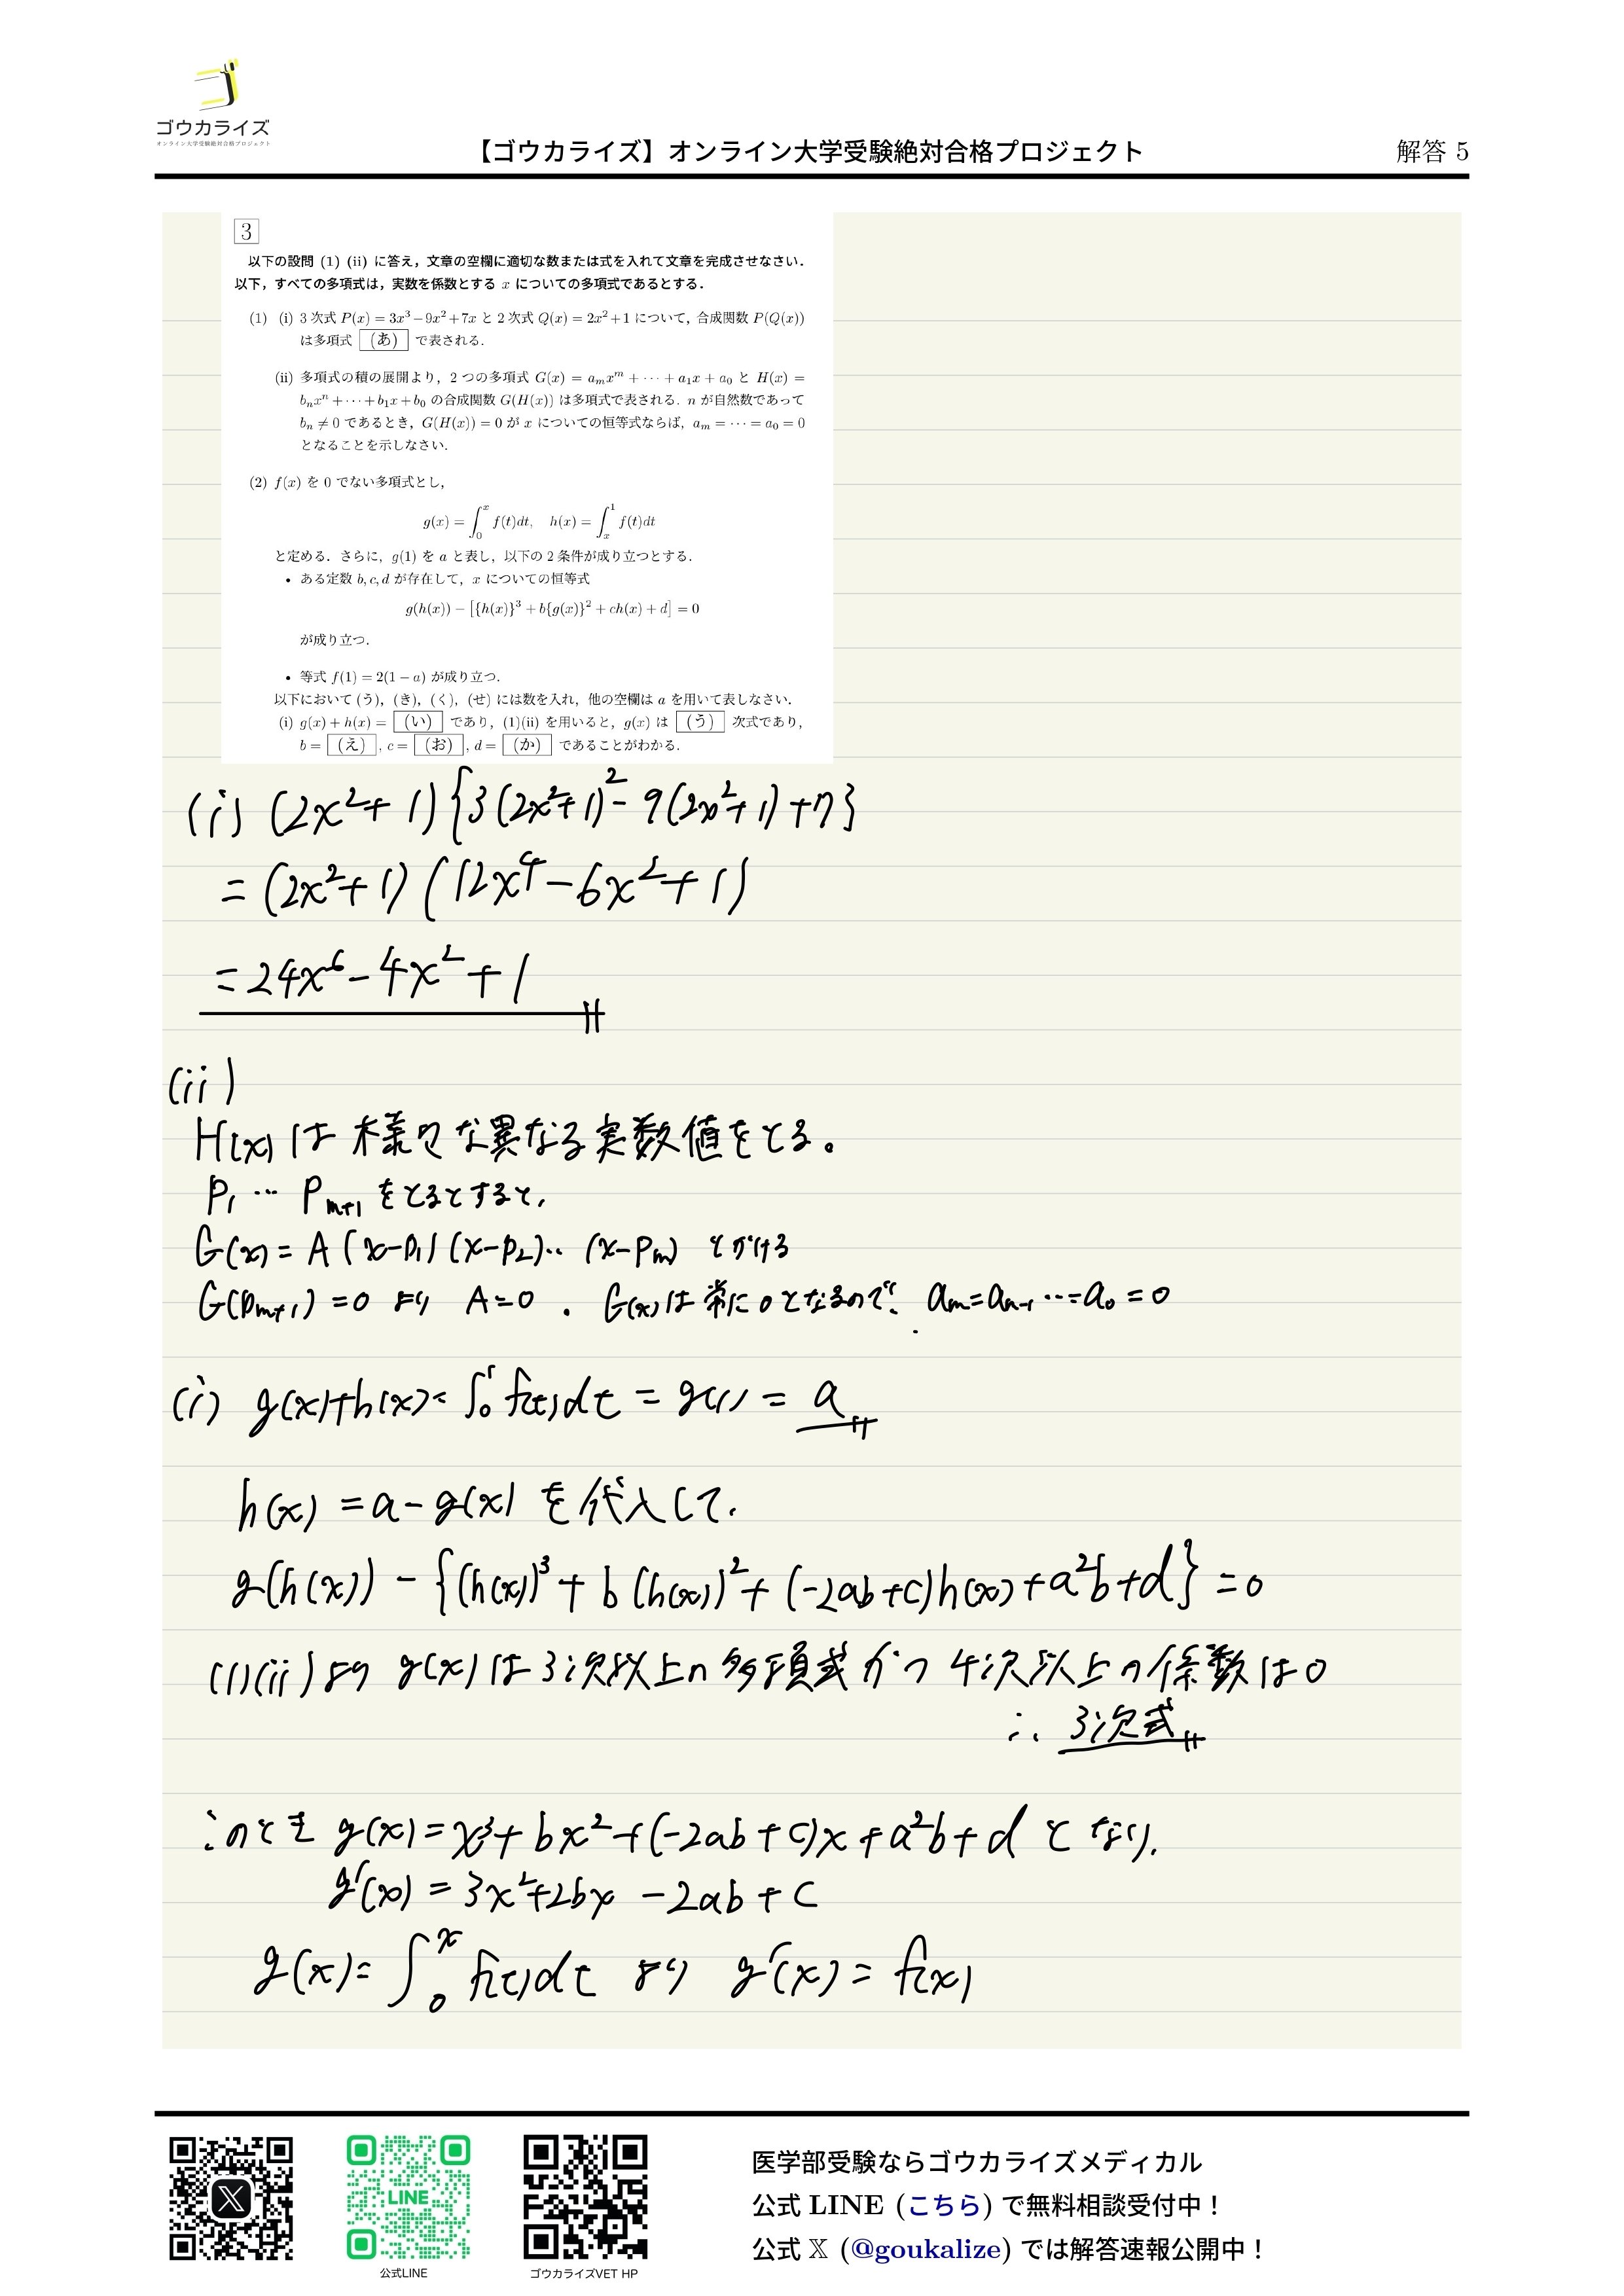 ゴウカライズ
オンライン大学受験絶対合格プロジェクト
【ゴウカライズ】オンライン大学受験絶対合格プロジェクト
解答 5
3
以下の設問 (1) (ii) に答え，文章の空欄に適切な数または式を入れて文章を完成させなさい．
以下，すべての多項式は，実数を係数とする x についての多項式であるとする．
(1) (i) 3 次式 P(x) = 3x³ − 9x² + 7x と 2 次式 Q(x) = 2x² + 1 について，合成関数 P(Q(x))
は多項式 (あ) で表される．
(ii) 多項式の積の展開より，2 つの多項式 G(x) = aₘxᵐ + ⋯ + a₁x + a₀ と H(x) =
bₙxⁿ + ⋯ + b₁x + b₀ の合成関数 G(H(x)) は多項式で表される．n が自然数であって
bₙ ≠ 0 であるとき，G(H(x)) = 0 が x についての恒等式ならば，aₘ = ⋯ = a₀ = 0
となることを示しなさい．
(2) f(x) を 0 でない多項式とし，
g(x) = ∫₀ˣ f(t)dt, h(x) = ∫ₓ¹ f(t)dt
と定める．さらに，g(1) を a と表し，以下の 2 条件が成り立つとする．
• ある定数 b, c, d が存在して，x についての恒等式
g(h(x)) − [{h(x)}³ + b{g(x)}² + ch(x) + d] = 0
が成り立つ．
• 等式 f(1) = 2(1 − a) が成り立つ．
以下において (う)，(き)，(く)，(せ) には数を入れ，他の空欄は a を用いて表しなさい．
(i) g(x) + h(x) = (い) であり，(1)(ii) を用いると，g(x) は (う) 次式であり，
b = (え) , c = (お) , d = (か) であることがわかる．
(i) (2x²+1){3(2x²+1)²-9(2x²+1)+7}
= (2x²+1)(12x⁴-6x²+1)
= 24x⁶-4x²+1
(ii)
H(x) は 様々な異なる実数値をとる。
P₁ … Pₘ₊₁ をとるとすると，
G(x) = A(x-p₁)(x-p₂)…(x-pₘ) とかける
G(pₘ₊₁)=0 より A=0 . G(x)は常に0となるので， aₘ=aₙ₋₁…=a₀=0
(i) g(x)+h(x)= ∫₀¹ f(t)dt = g(1) = a
h(x) = a-g(x) を代入して.
g(h(x)) - {(h(x))³ + b(h(x))² + (-2ab+c)h(x) + a²b+d} = 0
(1)(ii)より g(x)は3次以上の多項式かつ4次以上の係数は0
∴ 3次式
このとき g(x)=x³+bx²+(-2ab+c)x+a²b+d となり.
g'(x) = 3x²+2bx -2ab+c
g(x)= ∫₀ˣ f(t)dt より g'(x) = f(x)
LINE
公式LINE
ゴウカライズVET HP
医学部受験ならゴウカライズメディカル
公式 LINE (こちら) で無料相談受付中！
公式 𝕏 (@goukalize) では解答速報公開中！